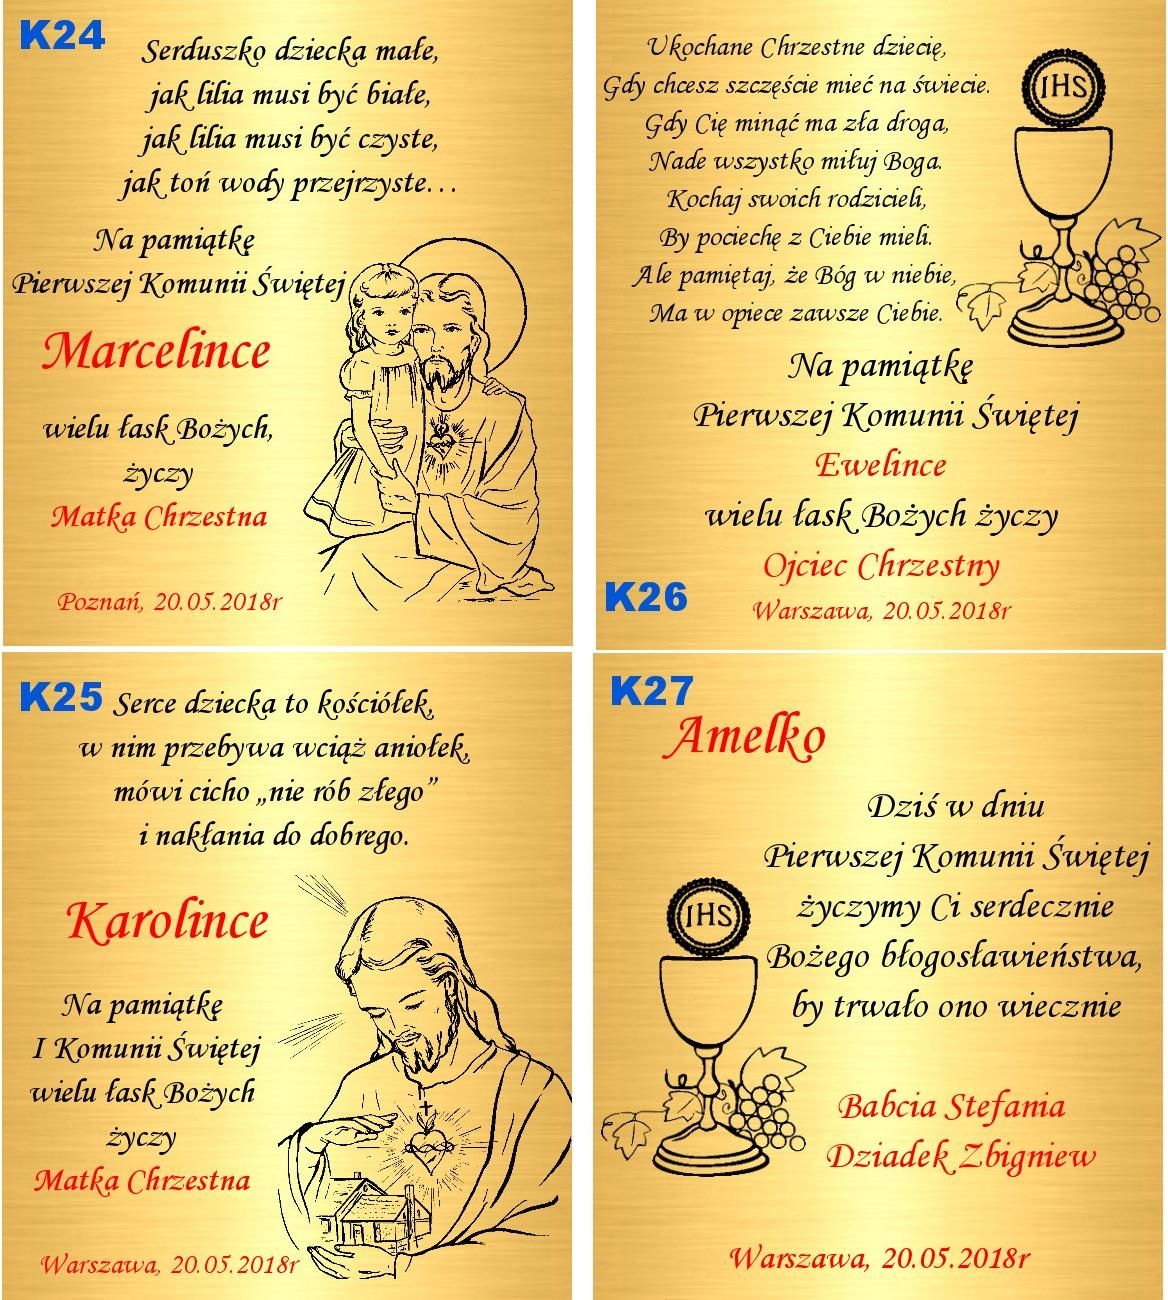 K24
Serduszko dziecka małe,
jak lilia musi być białe,
jak lilia musi być czyste,
jak toń wody przejrzyste...
Na pamiątkę
Pierwszej Komunii Świętej
Marcelince
wielu łask Bożych,
życzy
Matka Chrzestna
Poznań, 20.05.2018r
Ukochane Chrzestne dziecię,
Gdy chcesz szczęście mieć na świecie.
Gdy Cię minąć ma zła droga,
Nade wszystko miłuj Boga.
Kochaj swoich rodzicieli,
By pociechę z Ciebie mieli.
Ale pamiętaj, że Bóg w niebie,
Ma w opiece zawsze Ciebie.
IHS
Na pamiątkę
Pierwszej Komunii Świętej
Ewelince
wielu łask Bożych życzy
Ojciec Chrzestny
K26
Warszawa, 20.05.2018r
K25
Serce dziecka to kościółek,
w nim przebywa wciąż aniołek,
mówi cicho „nie rób złego”
i nakłania do dobrego.
Karolince
Na pamiątkę
I Komunii Świętej
wielu łask Bożych
życzy
Matka Chrzestna
Warszawa, 20.05.2018r
K27
Amelko
Dziś w dniu
Pierwszej Komunii Świętej
życzymy Ci serdecznie
Bożego błogosławieństwa,
by trwało ono wiecznie
IHS
Babcia Stefania
Dziadek Zbigniew
Warszawa, 20.05.2018r